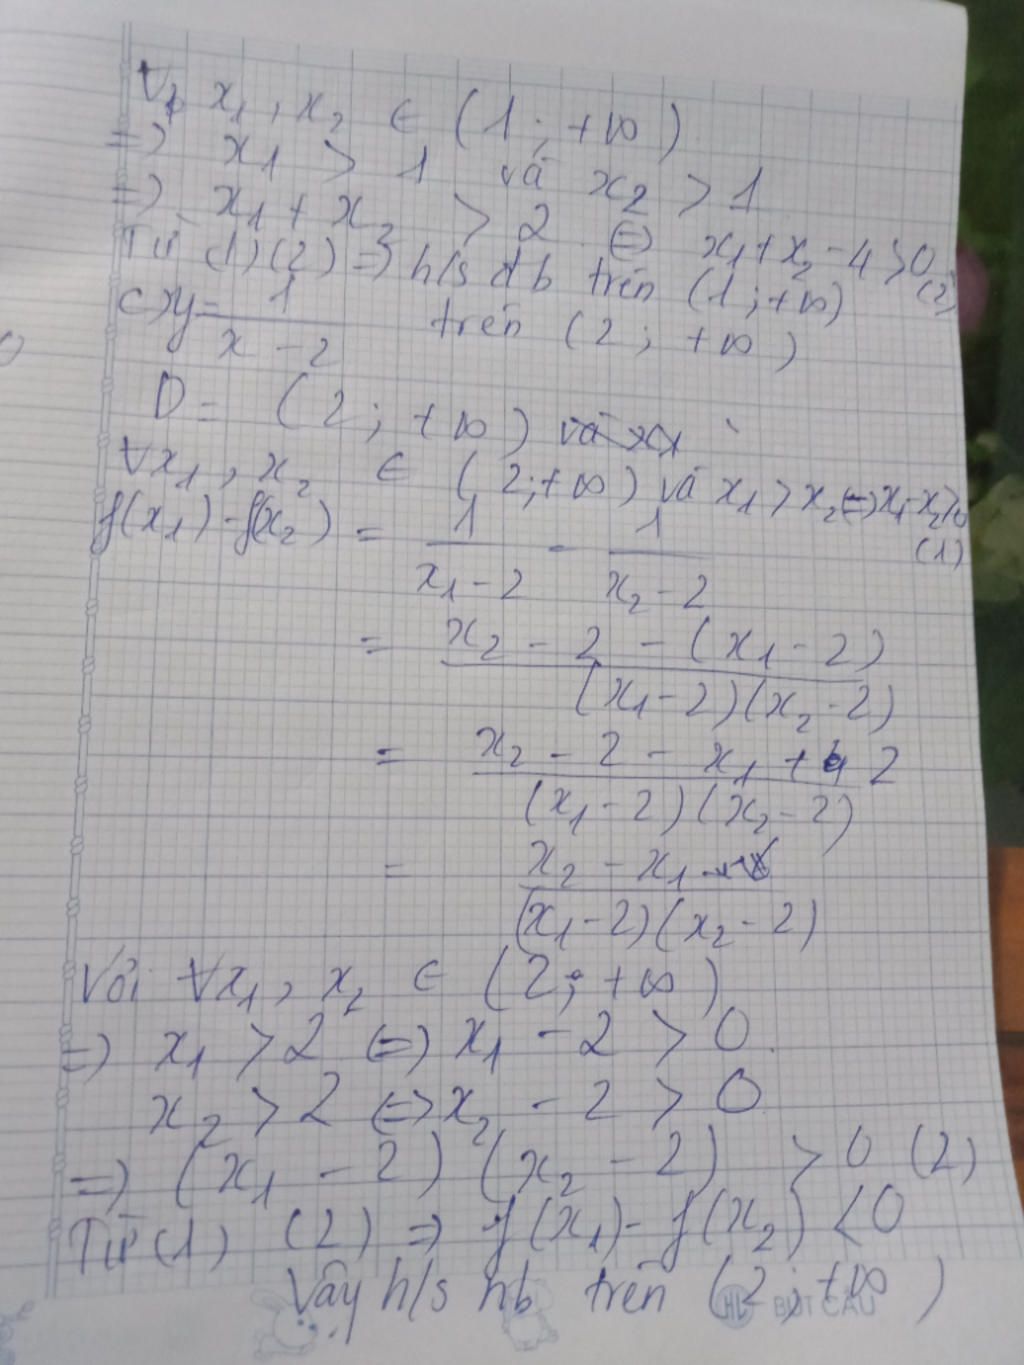 ∀ x₁, x₂ ∈ (1; +∞)
=) x₁ > 1 và x₂ > 1
=) x₁ + x₂ > 2 (=) x₁ + x₂ - 4 > 0 (2)
Từ (1)(2) =) h/s đb trên (1; +∞)
c) y = 1/(x - 2) trên (2; +∞)
D = (2; +∞)
∀x₁, x₂ ∈ (2; +∞) và x₁ > x₂ (=) x₁ - x₂ > 0 (1)
f(x₁) - f(x₂) = 1/(x₁ - 2) - 1/(x₂ - 2)
= (x₂ - 2 - (x₁ - 2))/((x₁ - 2)(x₂ - 2))
= (x₂ - 2 - x₁ + 2)/((x₁ - 2)(x₂ - 2))
= (x₂ - x₁)/((x₁ - 2)(x₂ - 2))
Với ∀x₁, x₂ ∈ (2; +∞)
=) x₁ > 2 (=) x₁ - 2 > 0
x₂ > 2 (=) x₂ - 2 > 0
=) (x₁ - 2)(x₂ - 2) > 0 (2)
Từ (1) (2) =) f(x₁) - f(x₂) < 0
Vậy h/s nb trên (2; +∞)